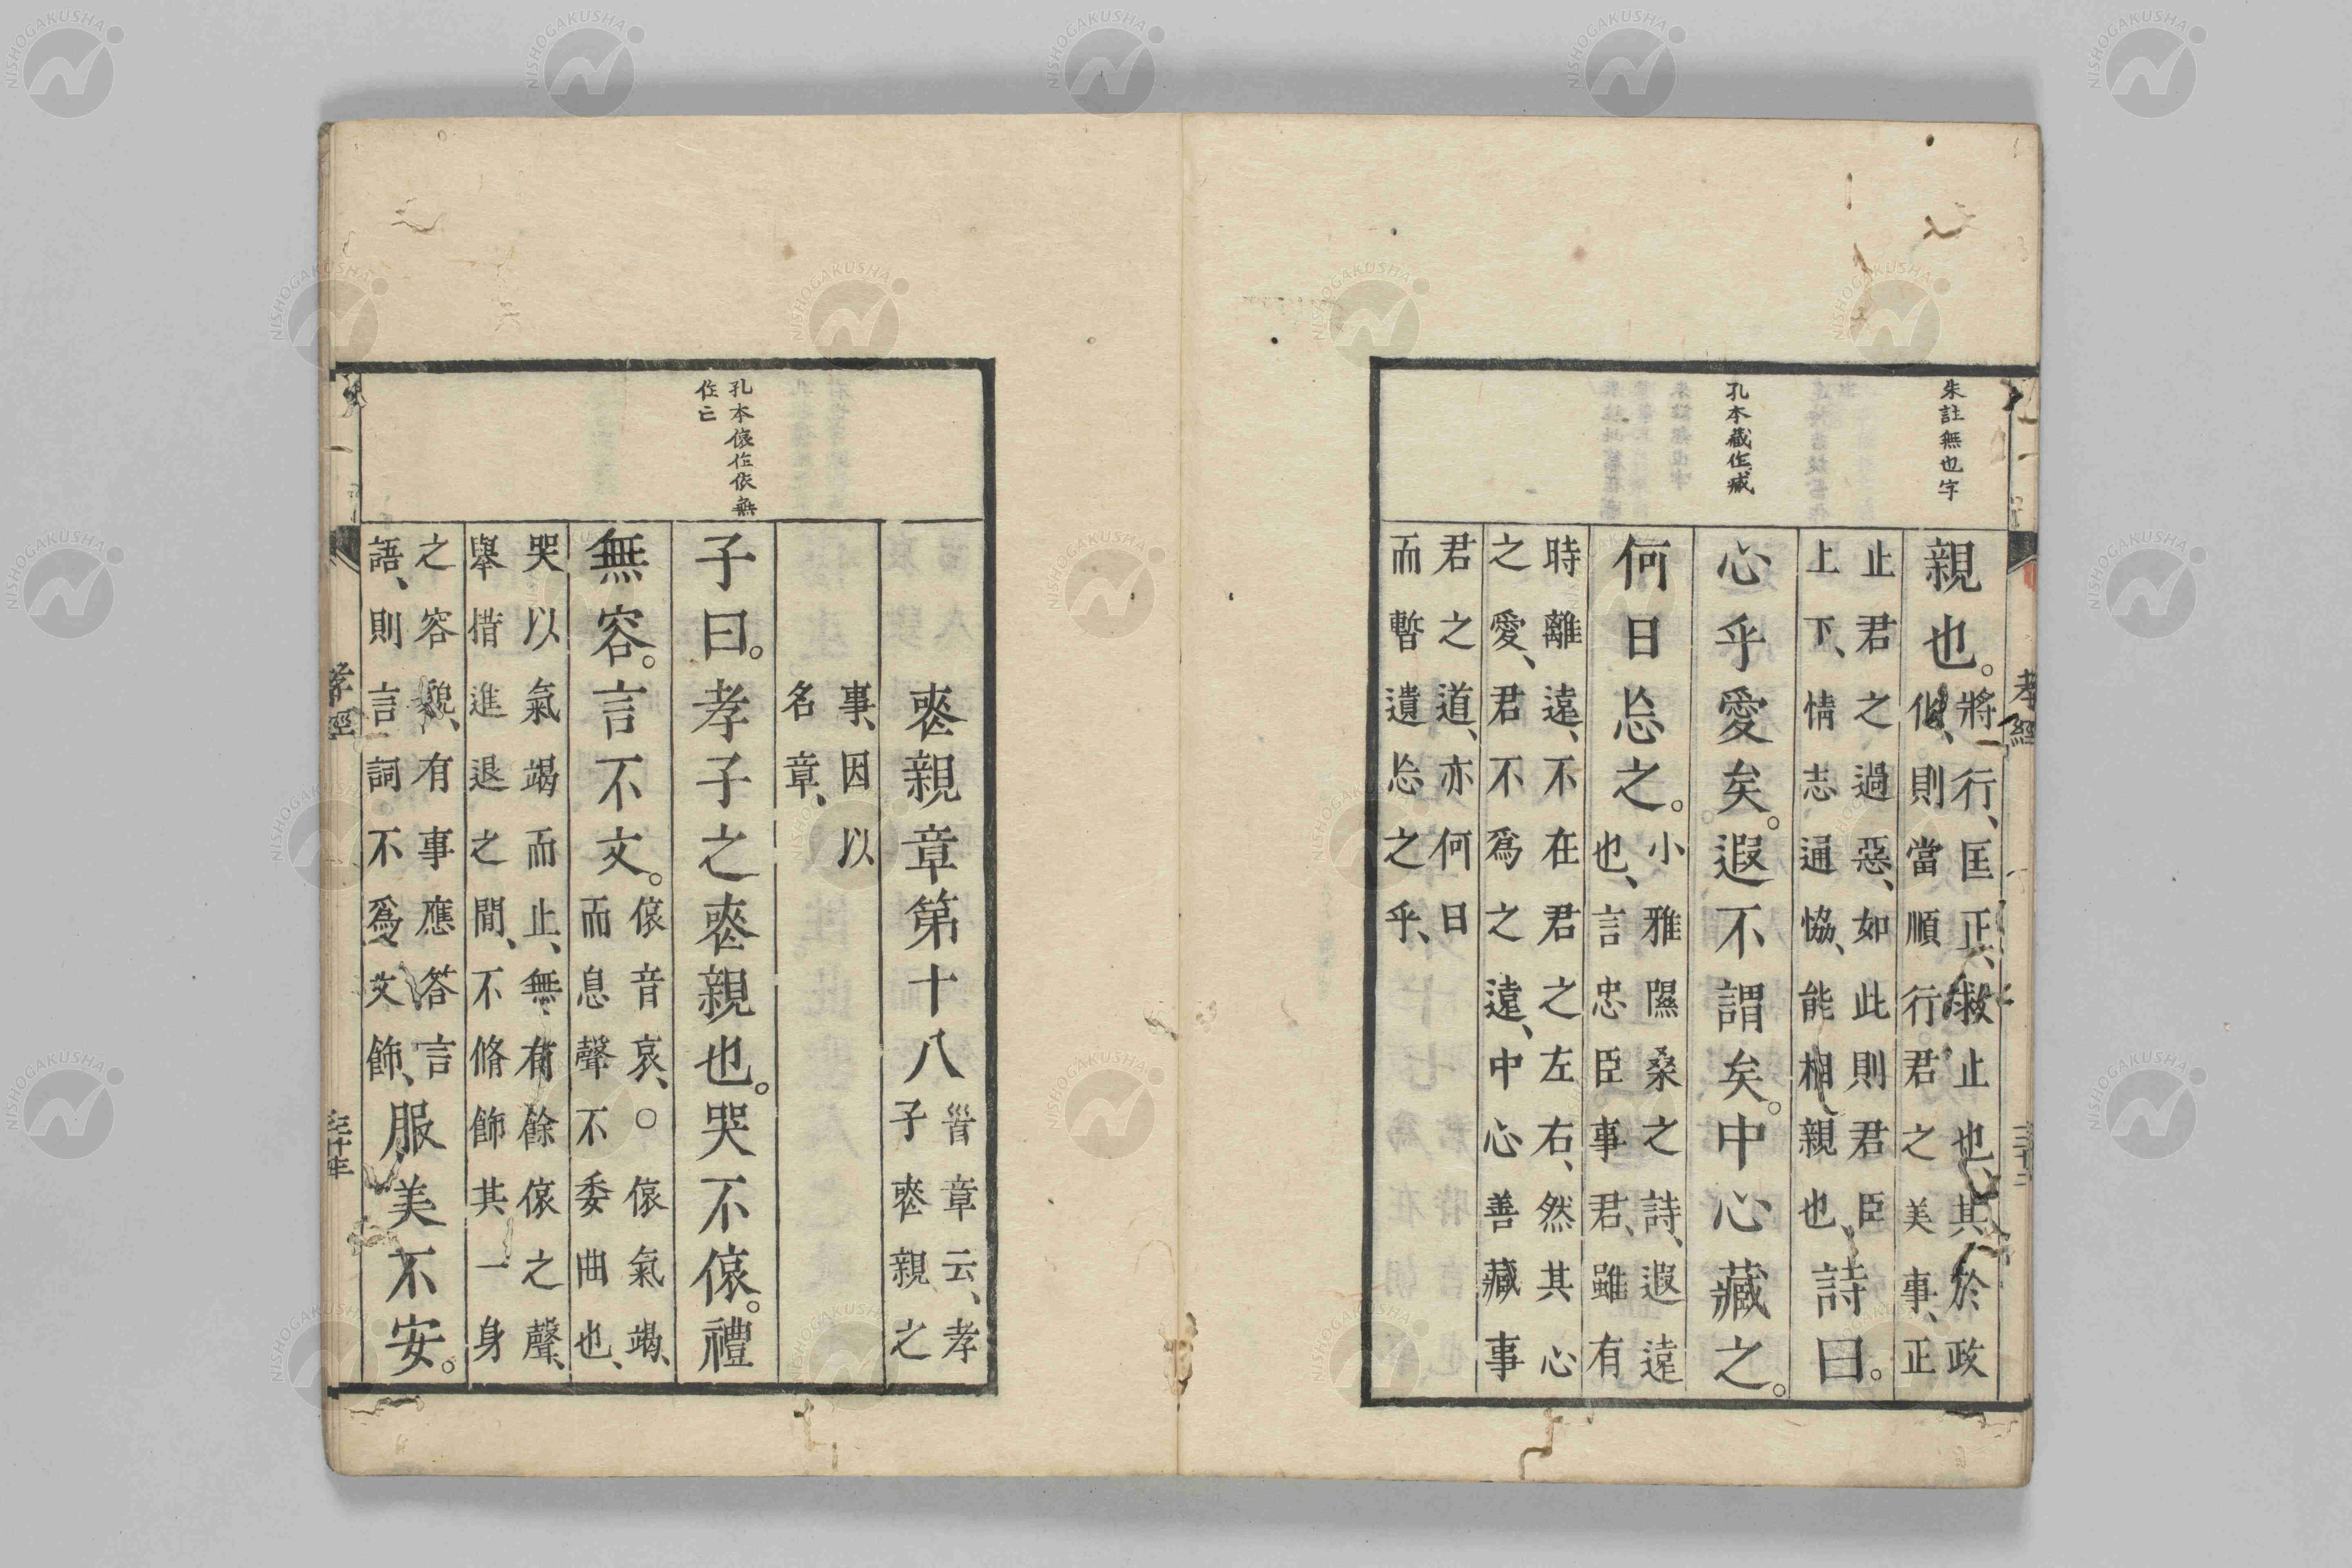 朱註無也字
孔本藏作臧
親也。將行、匡正、救止也、其於政
化、則當順行君之美事、正
止君之過惡、如此則君臣
上下、情志通協、能相親也、詩曰。
心乎愛矣。遐不謂矣。中心藏之。
何日忘之。小雅隰桑之詩、遐遠
也、言忠臣事君、雖有
時離遠、不在君之左右、然其心
之愛、君不爲之遠、中心善藏事
君之道、亦何日
而暫遺忘之乎、
孝經
三十二
孔本偯作依無
作亡
喪親章第十八 晳章云、孝
子喪親之
事、因以
名章、
子曰。孝子之喪親也。哭不偯。禮
無容。言不文。偯音哀、〇偯氣竭、
而息聲不委曲也、
哭以氣竭而止、無有餘偯之聲、
舉措進退之間、不脩飾其一身
之容貌、有事應答言
語、則言詞不爲文飾、服美不安。
孝經
NISHOGAKUSHA